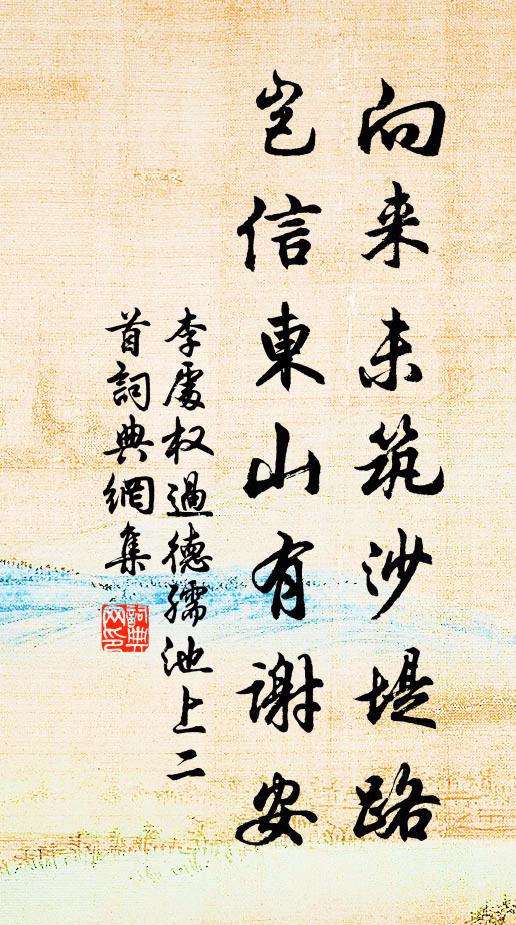 向来未筑沙堤路
岂信東山有謝安
李處权過德孺池上二
首詞典網集
詞典网印